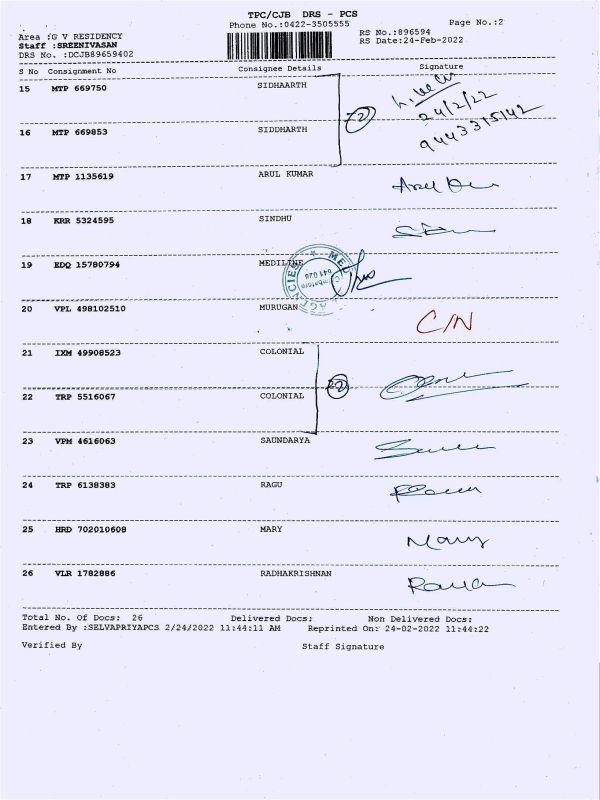 TPC/CJB DRS - PCS
Phone No.:0422-3505555
Page No.:2
Area :G V RESIDENCY
RS No.:896594
Staff :SREENIVASAN
RS Date:24-Feb-2022
DRS No. :DCJB89659402
S No Consignment No Consignee Details Signature
15 MTP 669750 SIDHAARTH
24/2/22
16 MTP 669853 SIDDHARTH
9443315142
17 MTP 1135619 ARUL KUMAR
18 KRR 5324595 SINDHU
19 EDQ 15780794 MEDILINE
20 VPL 498102510 MURUGAN C/N
21 IXM 49908523 COLONIAL
22 TRP 5516067 COLONIAL
23 VPM 4616063 SAUNDARYA
24 TRP 6138383 RAGU
25 HRD 702010608 MARY Mary
26 VLR 1782886 RADHAKRISHNAN
Total No. Of Docs: 26 Delivered Docs: Non Delivered Docs:
Entered By :SELVAPRIYAPCS 2/24/2022 11:44:11 AM Reprinted On: 24-02-2022 11:44:22
Verified By Staff Signature